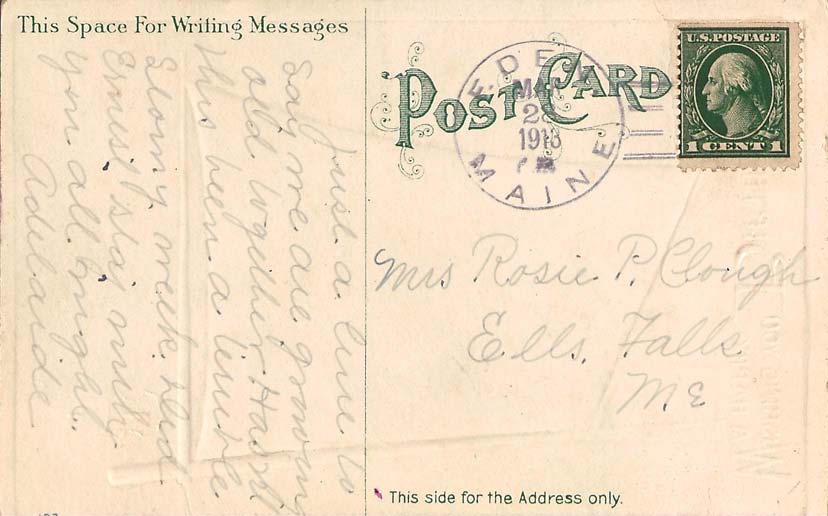 This Space For Writing Messages
Just a line to
Say we are growing
old together. Hasn't
this been a terrible
Stormy week. Did
Ernest stay with
you all night.
Adelaide
POST CARD
MAR
28
1913
MAINE
U.S. POSTAGE
1 CENT 1
Mrs Rosie P. Clough
Ells. Falls
Me
This side for the Address only.